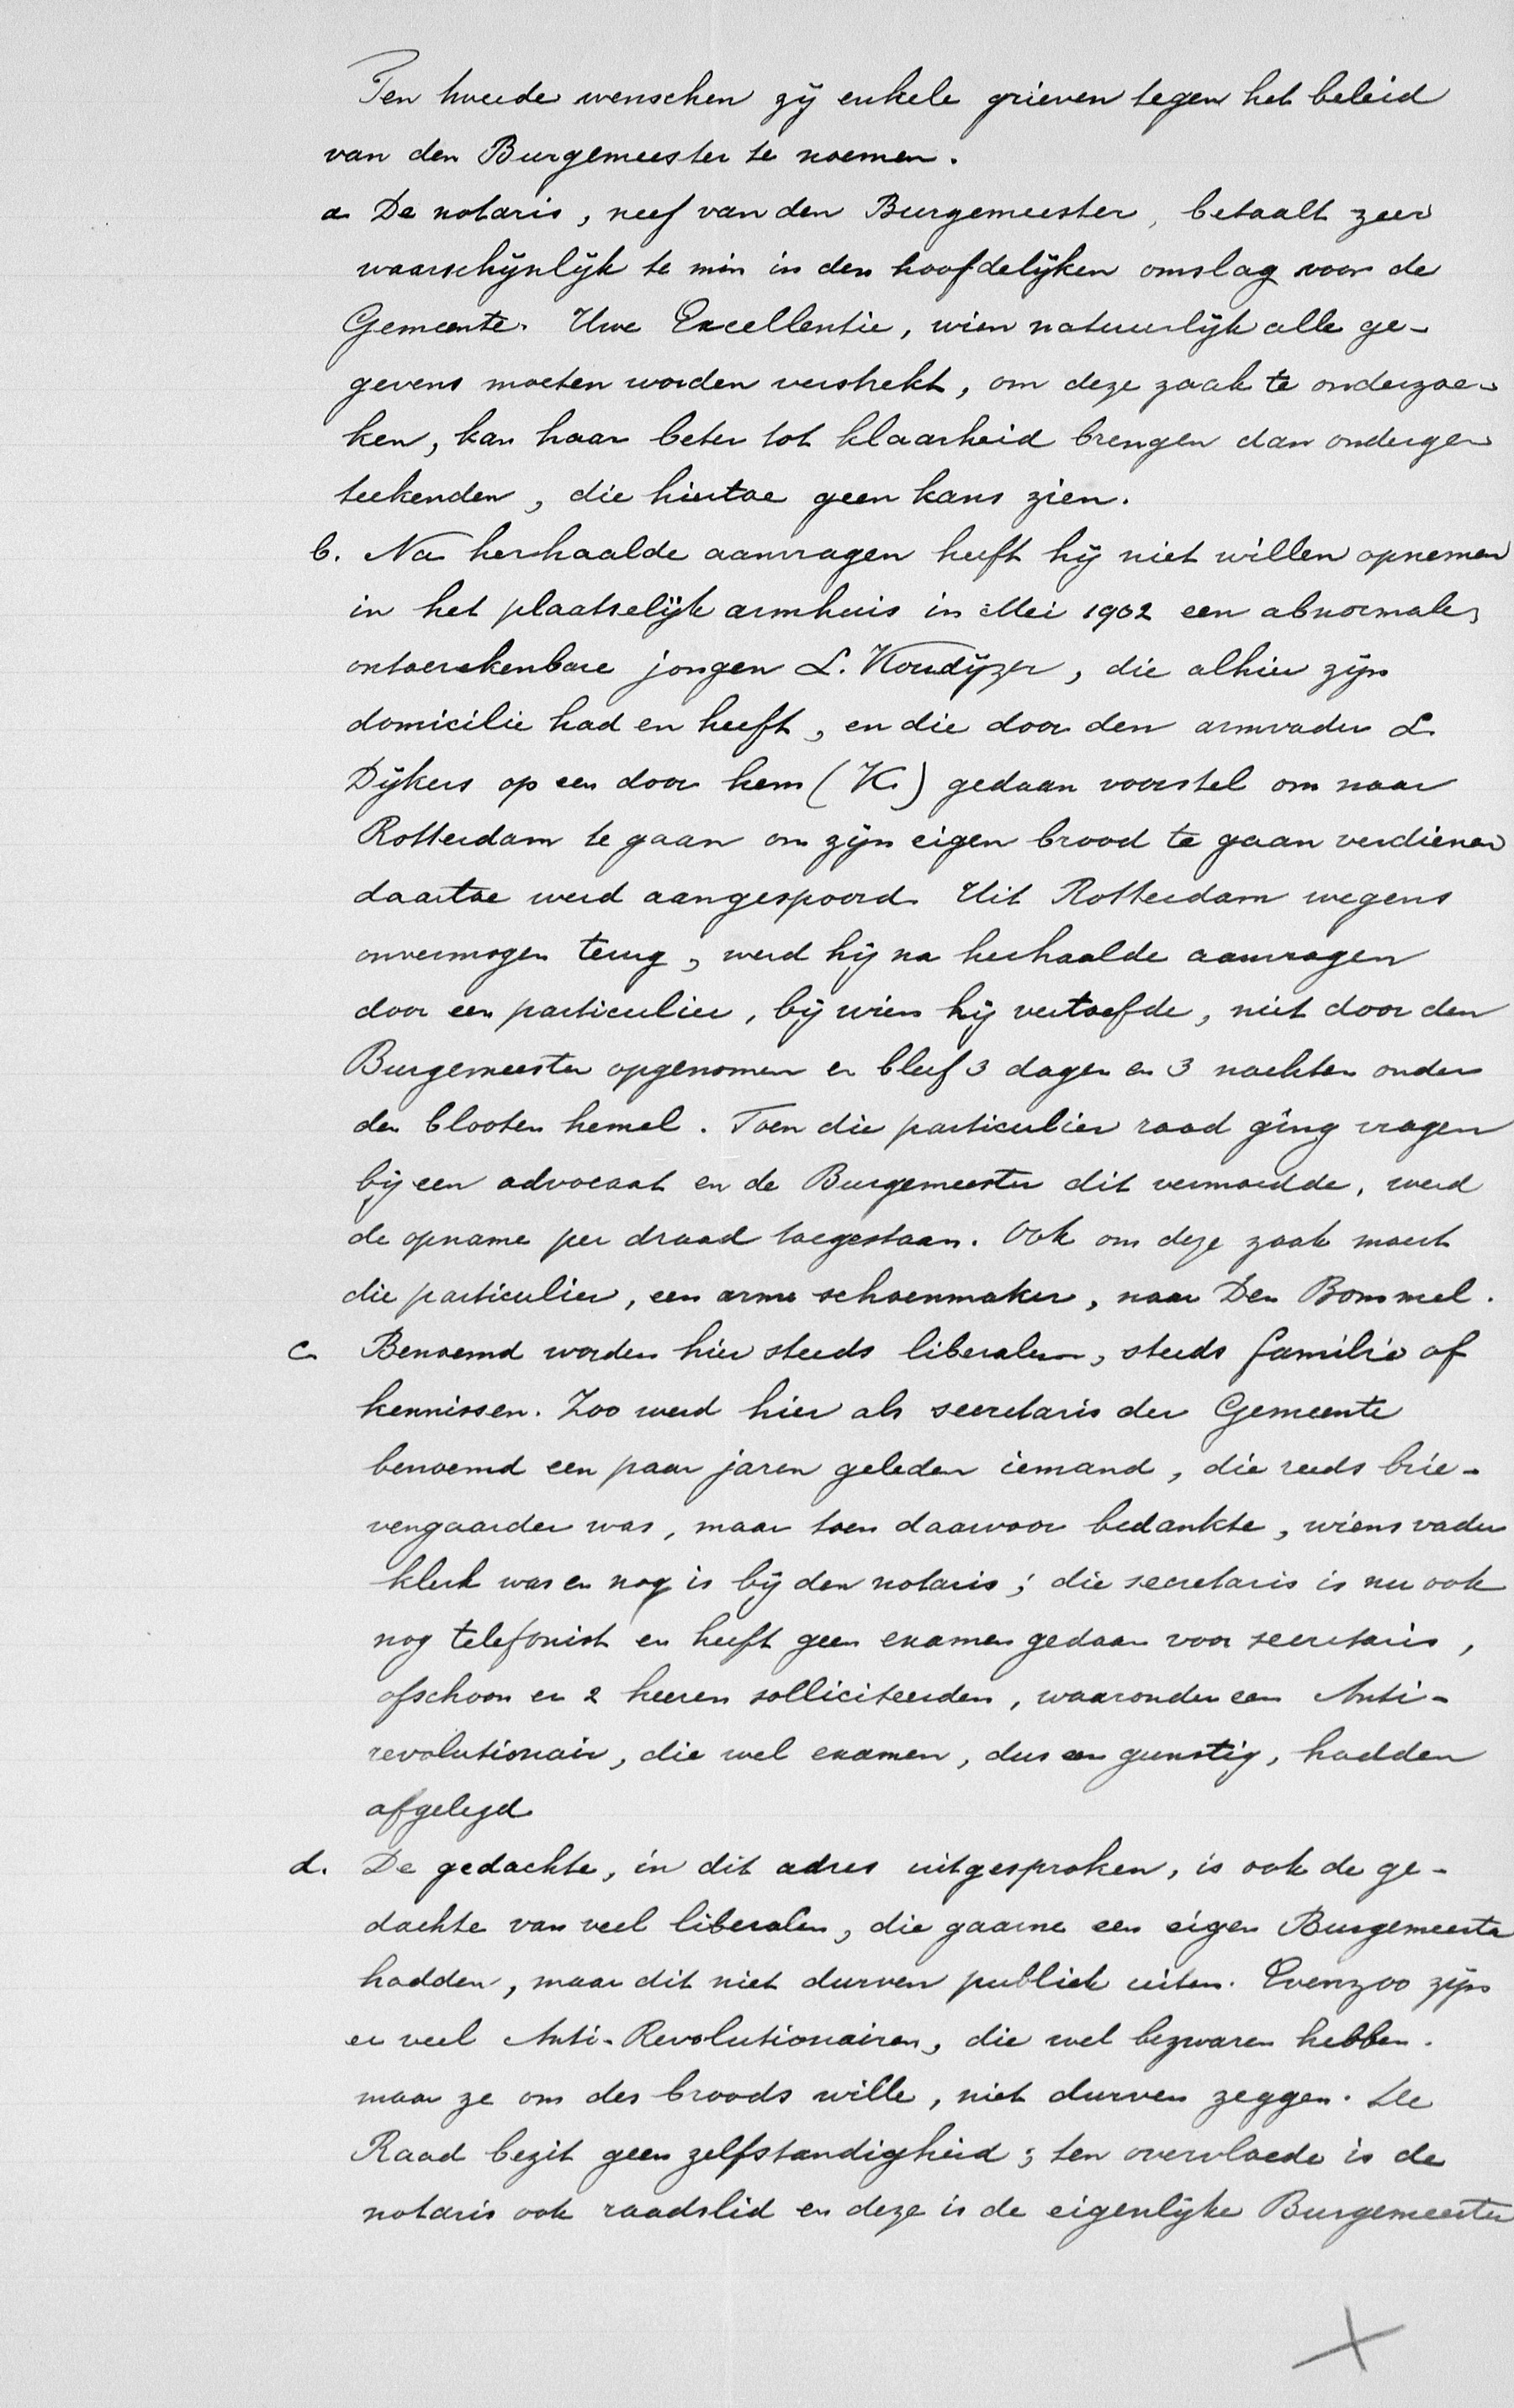 Ten tweede wenschen zij enkele grieven tegen het beleid
van den Burgemeester te noemen.
a. De notaris, neef van den Burgemeester, betaalt zeer
waarschijnlijk te min in den hoofdelijken omslag voor de
Gemeente. Uwe Excellentie, wien natuurlijk alle ge-
gevens moeten worden verstrekt, om deze zaak te onderzoe-
ken, kan haar beter tot klaarheid brengen dan onderge-
teekenden, die hiertoe geen kans zien.
b. Na herhaalde aanvragen heeft hij niet willen opnemen
in het plaatselijk armhuis in Mei 1902 een abnormale,
ontoerekenbare jongen L. Koudijzer, die alhier zijn
domicilie had en heeft, en die door den armvader L.
Dijkers op een door hem (K.) gedaan voorstel om naar
Rotterdam te gaan om zijn eigen brood te gaan verdienen
daartoe werd aangespoord. Uit Rotterdam wegens
onvermogen terug, werd hij na herhaalde aanvragen
door een particulier, bij wien hij vertoefde, niet door den
Burgemeester opgenomen en bleef 3 dagen en 3 nachten onder
den blooten hemel. Toen die particulier raad ging vragen
bij een advocaat en de Burgemeester dit vermoedde, werd
de opname per draad toegestaan. Ook om deze zaak moest
die particulier, een arme schoenmaker, naar Den Bommel.
c. Benoemd worden hier steeds liberalen, steeds familie of
kennissen. Zoo werd hier als secretaris der Gemeente
benoemd een paar jaren geleden iemand, die reeds brie-
vengaarder was, maar toen daarvoor bedankte, wiens vader
klerk was en nog is bij den notaris; die secretaris is nu ook
nog telefonist en heeft geen examen gedaan voor secretaris,
ofschoon er 2 heeren solliciteerden, waaronder een Anti-
revolutionair, die wel examen, dus een gunstig, hadden
afgelegd.
d. De gedachte, in dit adres uitgesproken, is ook de ge-
dachte van veel liberalen, die gaarne een eigen Burgemeester
hadden, maar dit niet durven publiek uiten. Evenzoo zijn
er veel Anti-Revolutionairen, die wel bezwaren hebben.
maar ze om des broods wille, niet durven zeggen. De
Raad bezit geen zelfstandigheid; ten overvloede is de
notaris ook raadslid en deze is de eigenlijke Burgemeester